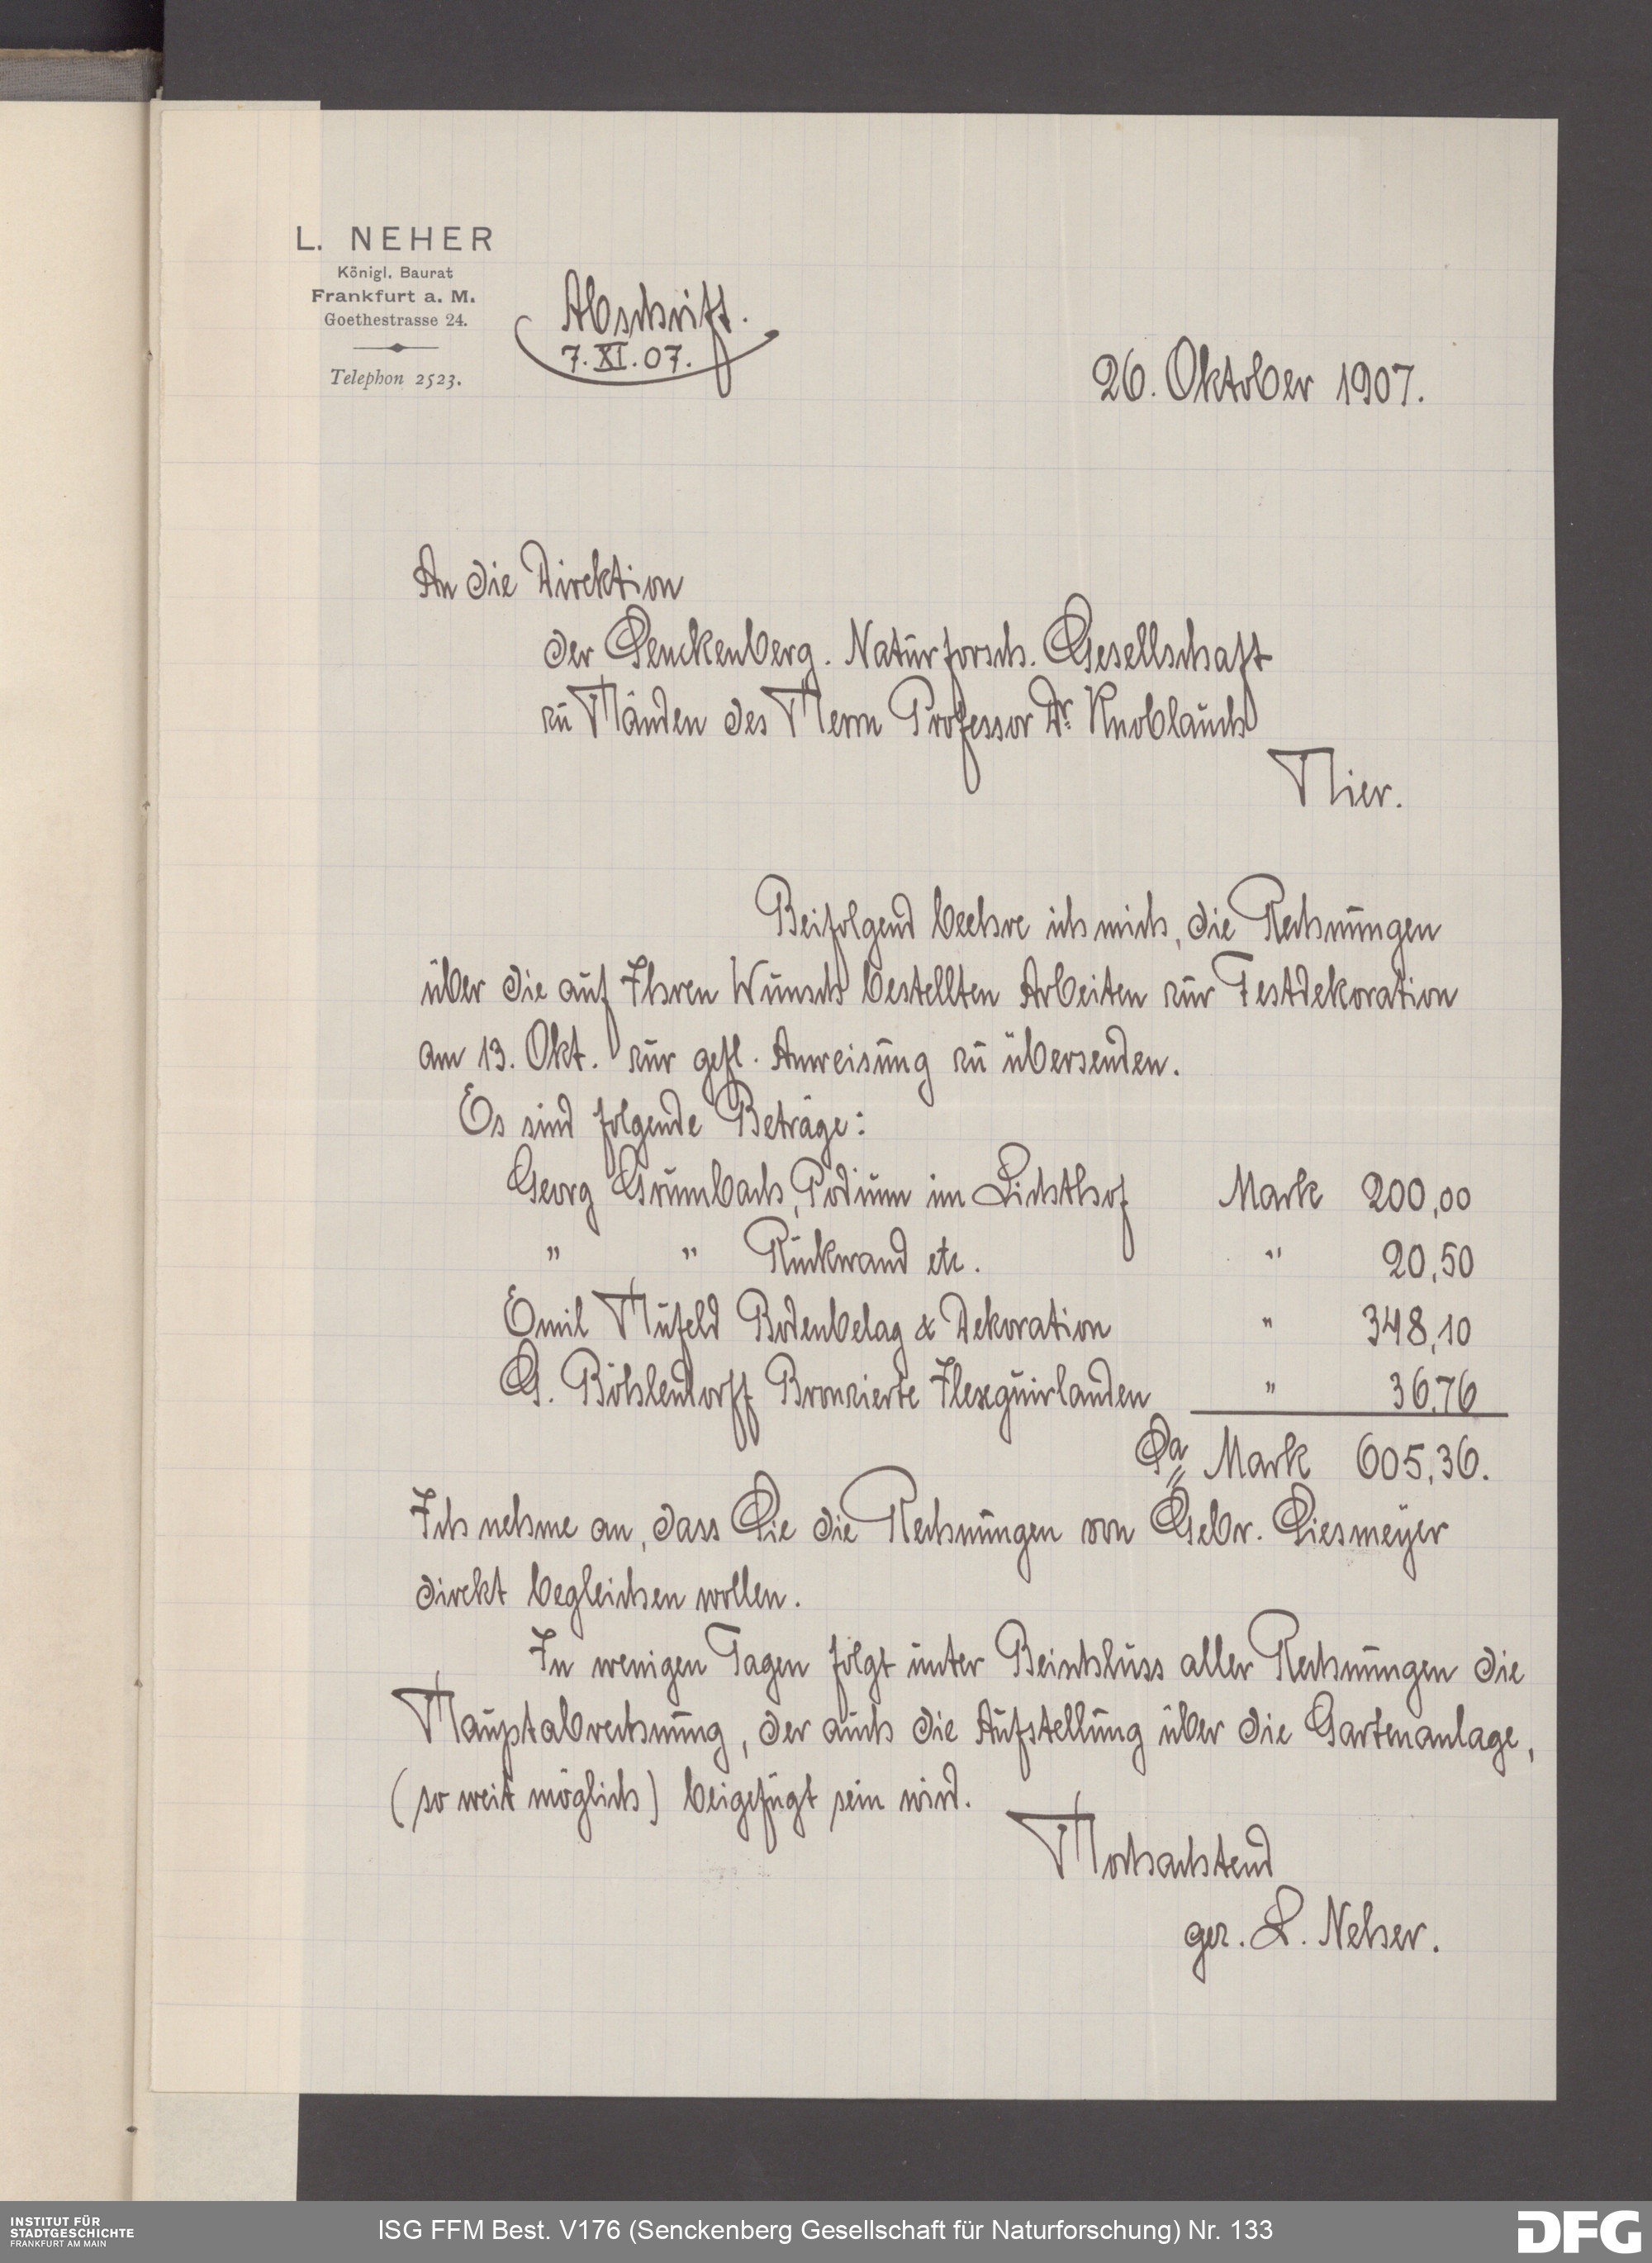 L. NEHER
Königl. Baurat
Frankfurt a. M.
Goethestrasse 24.
Telephon 2523.
Abschrift.
7. XI. 07.
26. Oktober 1907.
An die Direktion
der Senckenberg. Naturforsch. Gesellschaft
zu Händen des Herrn Professor Dr. Knoblauch
Hier.
Beifolgend beehre ich mich, die Rechnungen
über die auf Ihren Wunsch bestellten Arbeiten zur Festdekoration
am 13. Okt. zur gefl. Anweisung zu übersenden.
Es sind folgende Beträge:
Georg Grumbach, Podium im Lichthof Mark 200,00
" " Rückwand etc. " 20,50
Emil Hufeld Bodenbelag & Dekoration " 348,10
G. Böhlendorff Bronzierte Ilexguirlanden " 36,76
Sa Mark 605,36.
Ich nehme an, dass Sie die Rechnungen von Gebr. Siesmeyer
direkt begleichen wollen.
In wenigen Tagen folgt unter Beischluss aller Rechnungen die
Hauptabrechnung, der auch die Aufstellung über die Gartenanlage,
(so weit möglich) beigefügt sein wird.
Hochachtend
gez. L. Neher.
INSTITUT FÜR
STADTGESCHICHTE
FRANKFURT AM MAIN
ISG FFM Best. V176 (Senckenberg Gesellschaft für Naturforschung) Nr. 133
DFG